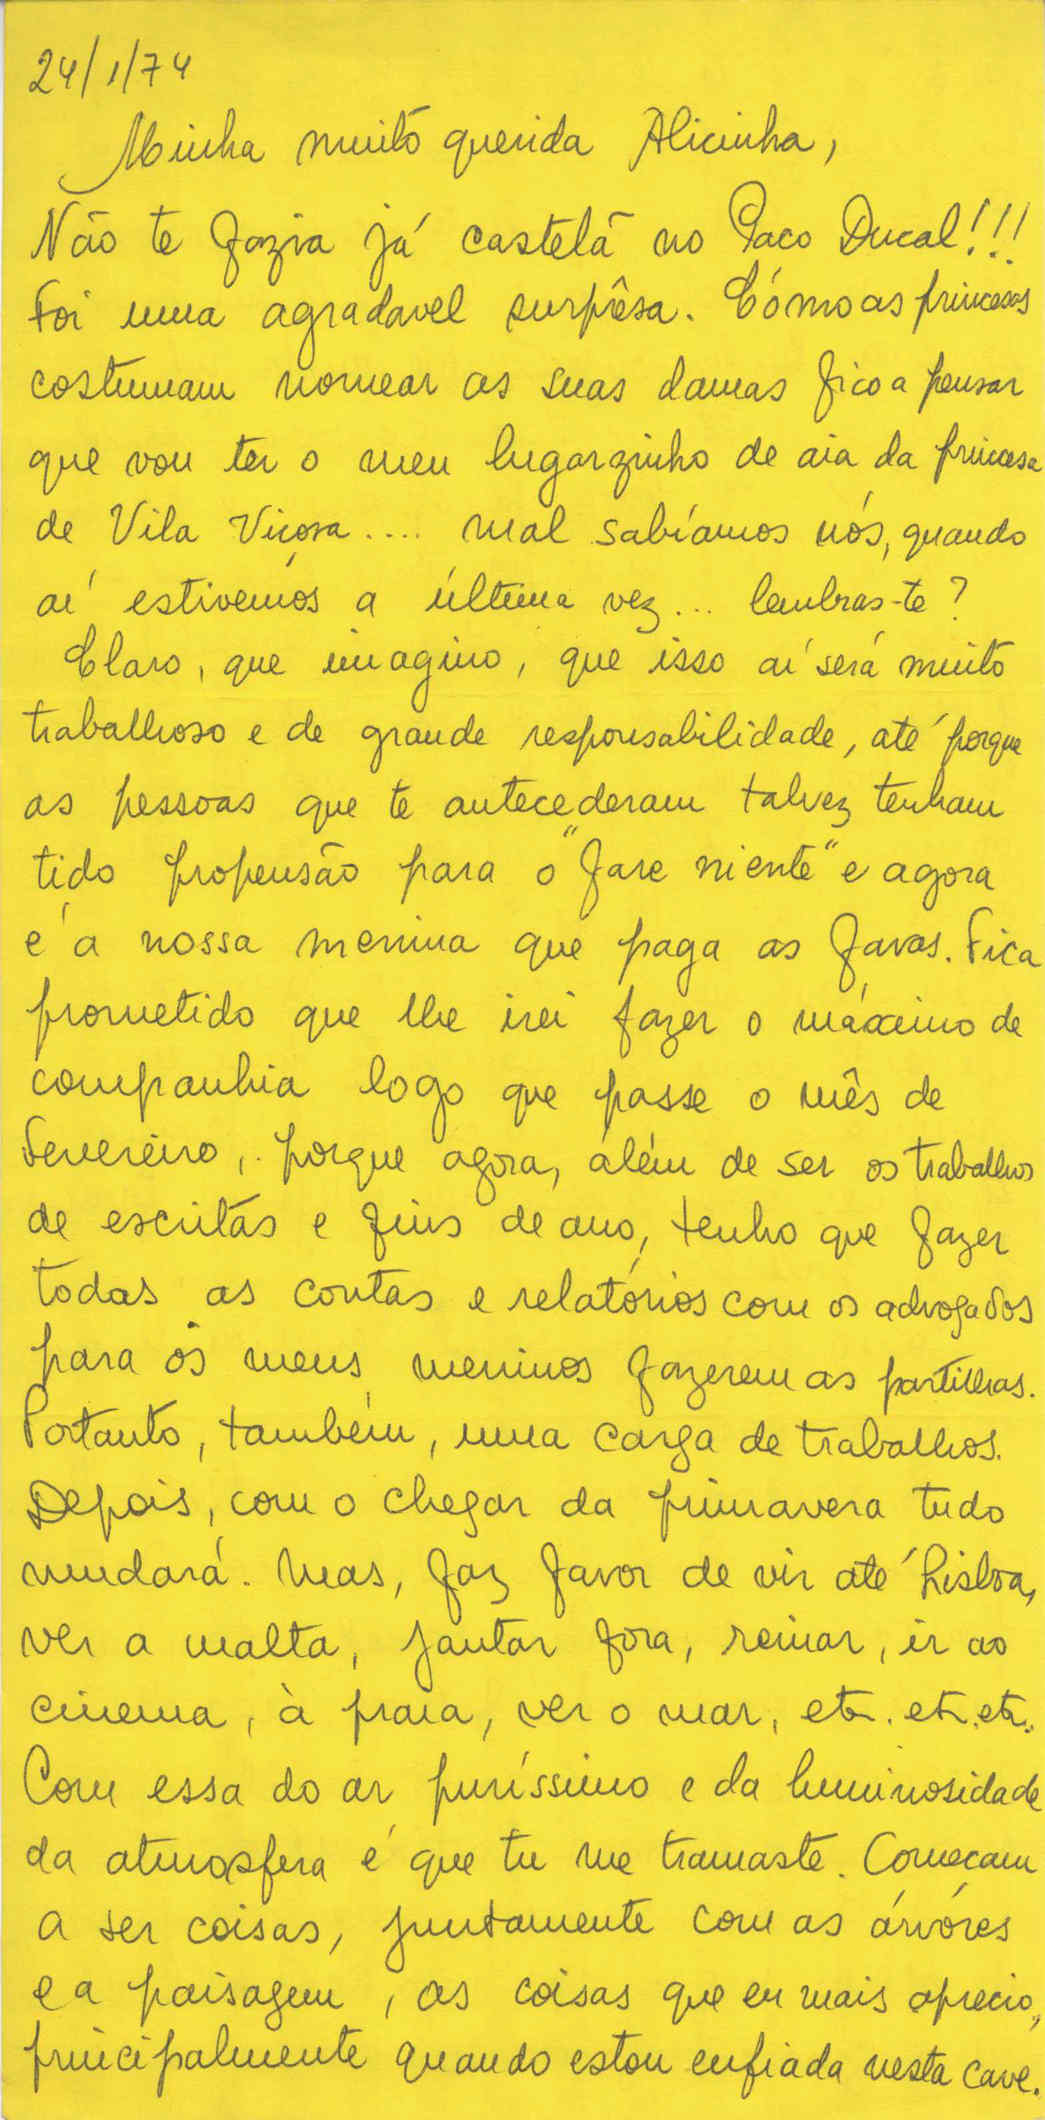 24/1/74
Minha muito querida Alicinha,
Não te fazia já castelã no Paço Ducal!!!
Foi uma agradavel surprêsa. Cómo as princesas
costumam nomear as suas damas fico a pensar
que vou ter o meu lugarzinho de aia da princesa
de Vila Viçosa.... mal sabíamos nós, quando
aí estivemos a última vez... lembras-te?
Claro, que imagino, que isso aí será muito
trabalhoso e de grande responsabilidade, até porque
as pessoas que te antecederam talvez tenham
tido propensão para o "fare niente" e agora
é a nossa menina que paga as favas. Fica
prometido que lhe irei fazer o máximo de
companhia logo que passe o mês de
Fevereiro, porque agora, além de ser os trabalhos
de escritas e fins de ano, tenho que fazer
todas as contas e relatórios com os advogados
para os meus meninos fazerem as partilhas.
Portanto, também, uma carga de trabalhos.
Depois, com o chegar da primavera tudo
mudará. Mas, faz favor de vir até Lisboa,
ver a malta, jantar fora, reinar, ir ao
cinema, à praia, ver o mar, etc. etc. etc.
Com essa do ar puríssimo e da luminosidade
da atmosfera é que tu me tramaste. Começam
a ser coisas, juntamente com as árvores
e a paisagem, as coisas que eu mais aprecio,
principalmente quando estou enfiada nesta cave.